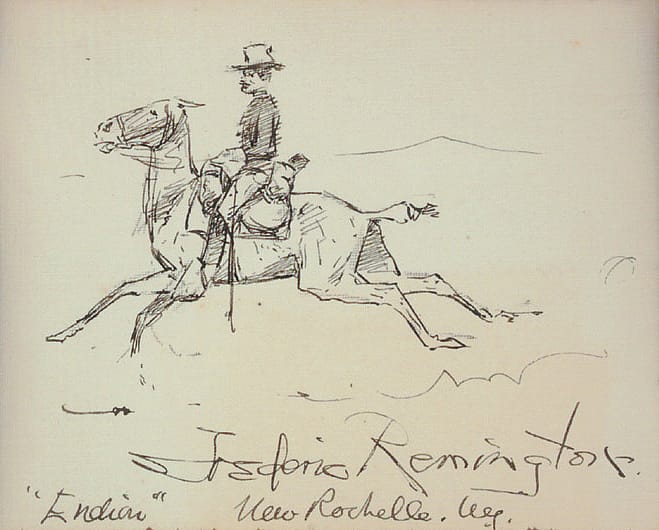 Frederic Remington.
"Endion" New Rochelle. N.Y.